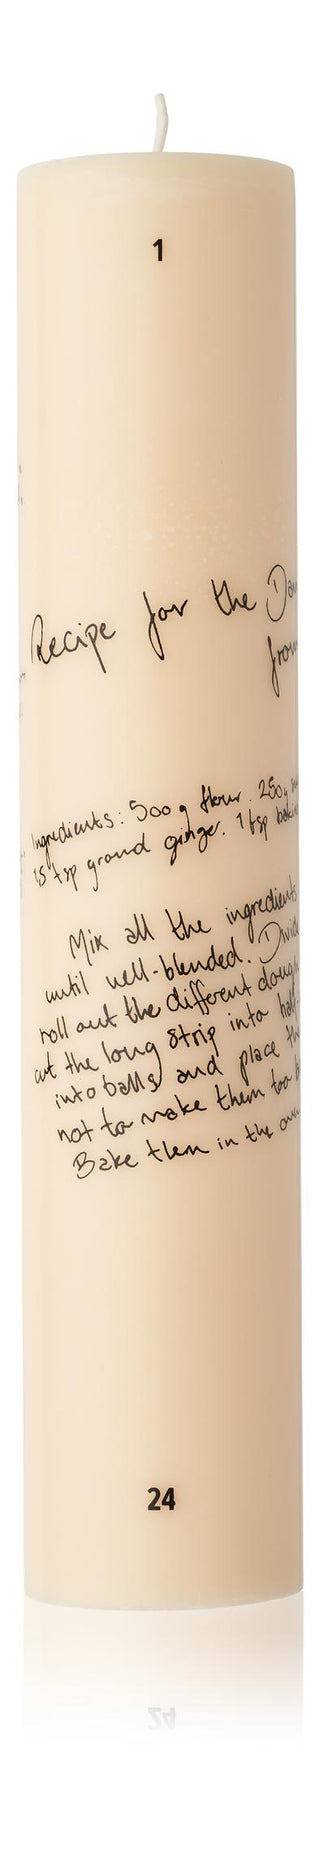 1
Recipe for the Da
from
Ingredients: 500 g flour. 250g
1,5 tsp ground ginger. 1 tsp bakin
Mix all the ingredients
until well-blended. Divide
roll out the different dough
cut the long strip into half-
into balls and place the
not to make them too b
Bake them in the oven
24